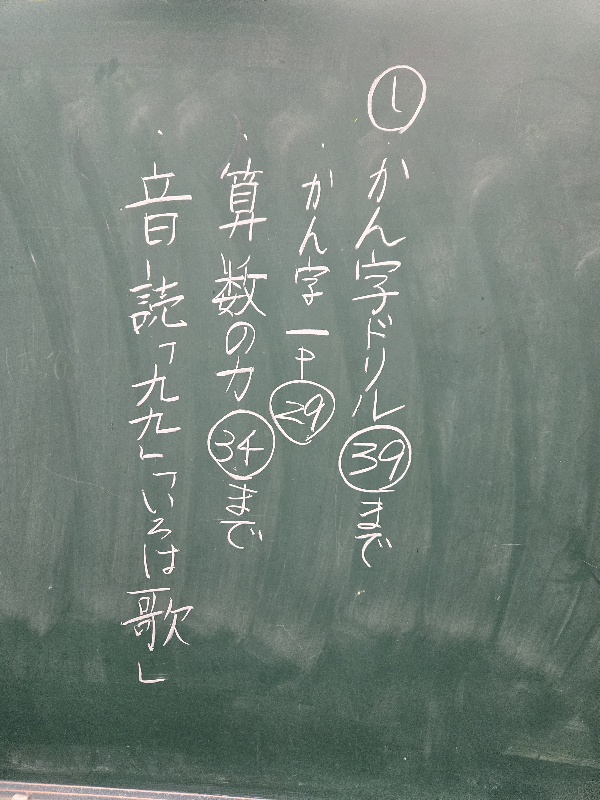 し
・かん字ドリル㊴まで
・かん字一P㉙
・算数の力㉞まで
・音読「九九」「いろは歌」